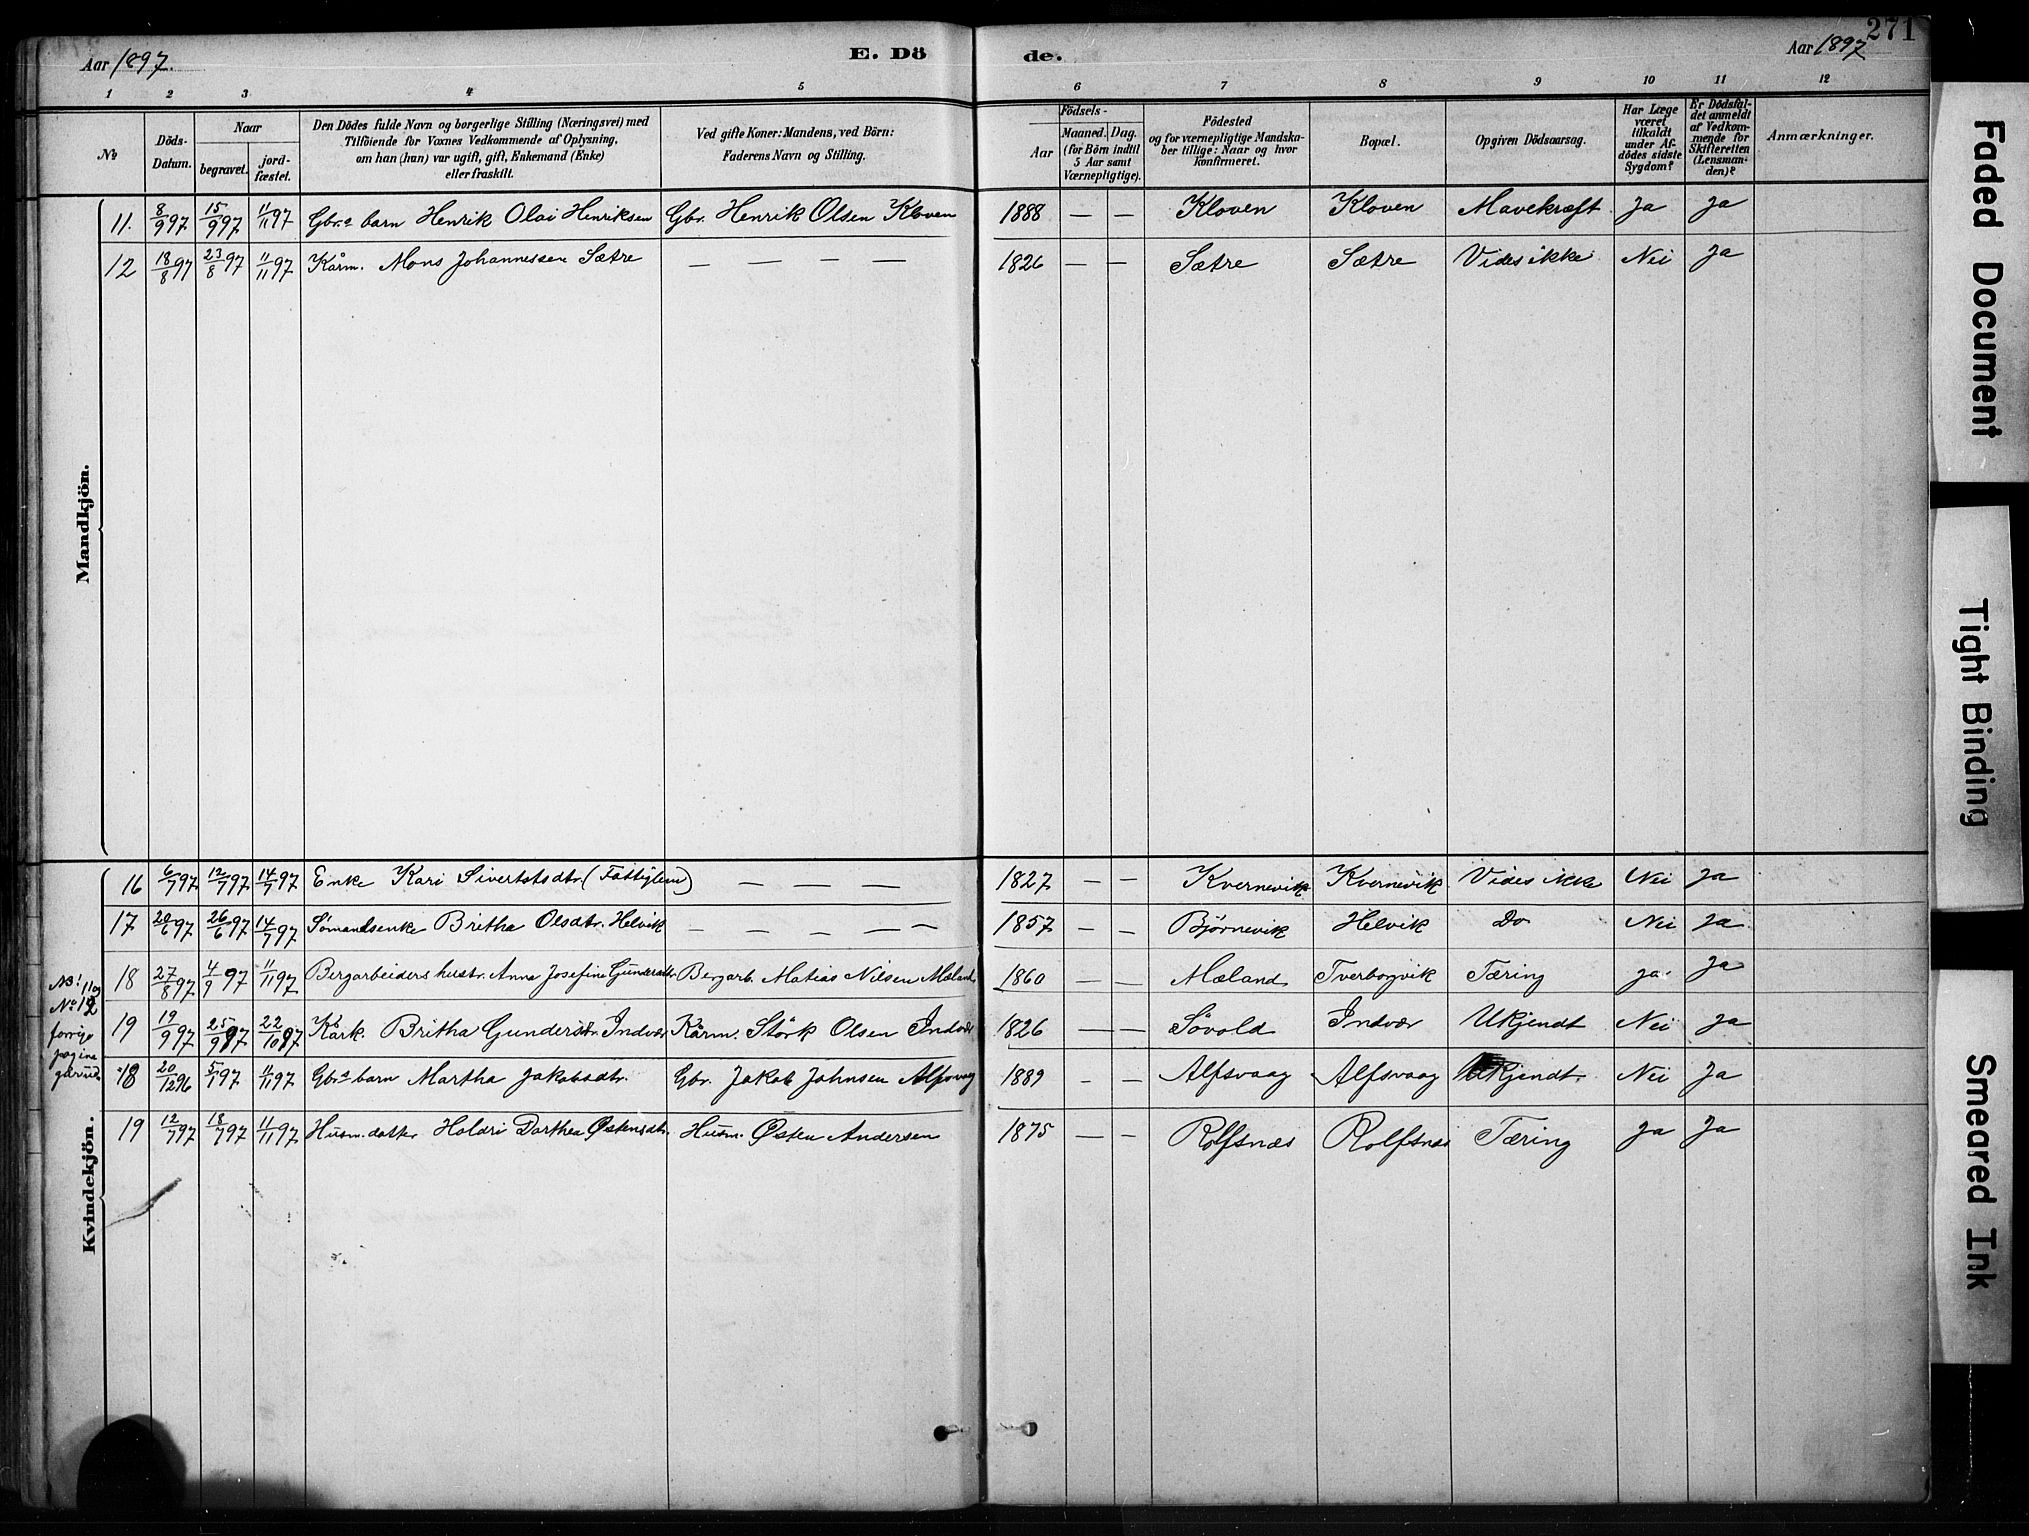 Aar 1897. E. Dö de. Aar 1897 271
1 2 3 4 5 6 7 8 9 10 11 12
No Döds-Datum. Naar begravet. jord-fæstet. Den Dödes fulde Navn og borgerlige Stilling (Næringsvei) med Tilföiende for Voxnes Vedkommende af Oplysning, om han (hun) var ugift, gift, Enkemand (Enke) eller fraskilt. Ved gifte Koner: Mandens, ved Börn: Faderens Navn og Stilling. Födsels- Aar Maaned. Dag. (for Börn indtil 5 Aar samt Værnepligtige). Födested og for værnepligtige Mandska-ber tillige: Naar og hvor konfirmeret. Bopæl. Opgiven Dödsaarsag. Har Læge været tilkaldt under Af-dödes sidste Sygdom? Er Dödsfal-det anmeldt af Vedkom-mende for Skifteretten (Lensman-den)? Anmærkninger.
Mandkjön.
11. 8/9 97 15/9 97 11/11 97 Gbr.s barn Henrik Olai Henriksen Gbr. Henrik Olsen Kloven 1888 — — Kloven Kloven Mavekræft Ja Ja
12 18/8 97 23/8 97 11/11 97 Kårm. Mons Johannessen Sætre — — — — 1826 — — Sætre Sætre Vides ikke Nei Ja
Kvindekjön.
16 6/7 97 12/7 97 14/7 97 Enke Kari Sivertsdtr. (Fattiglem) — — — 1827 — — Kvernevik Kvernevik Vides ikke Nei Ja
17 20/6 97 26/6 97 14/7 97 Sømandsenke Britha Olsdtr. Helvik — — — — — 1857 — — Bjørnevik Helvik Do Nei Ja
18 27/8 97 4/9 97 11/11 97 Bergarbeiders hustr. Anna Josefine Gundersdtr. Bergarb. Matias Nilsen Mæland 1860 — — Mæland Tverborgvik Tæring ja. Ja
19 19/9 97 25/9 97 22/10 97 Kårk. Britha Gundersdtr. Indvær Kårm. Störk Olsen Indvær 1826 — — Sövold Indvær Ukjendt Nei Ja
18 20/12 96 5/1 97 11/11 97 Gbr.s barn Martha Jakobsdtr. Gbr. Jakob Johnsen Alfsvaag 1889 - — Alfsvaag Alfsvaag Ukjendt. Nei Ja
19 12/7 97 18/7 97 11/11 97 Husm. datter Haldri Darthea Østensdtr. Husm. Østen Andersen 1875 — — Rolfsnæs Rolfsnæs Tæring Ja Ja
NB! 11 og
No 12
forrige
pagina
Faded Document
Tight Binding
Smeared Ink